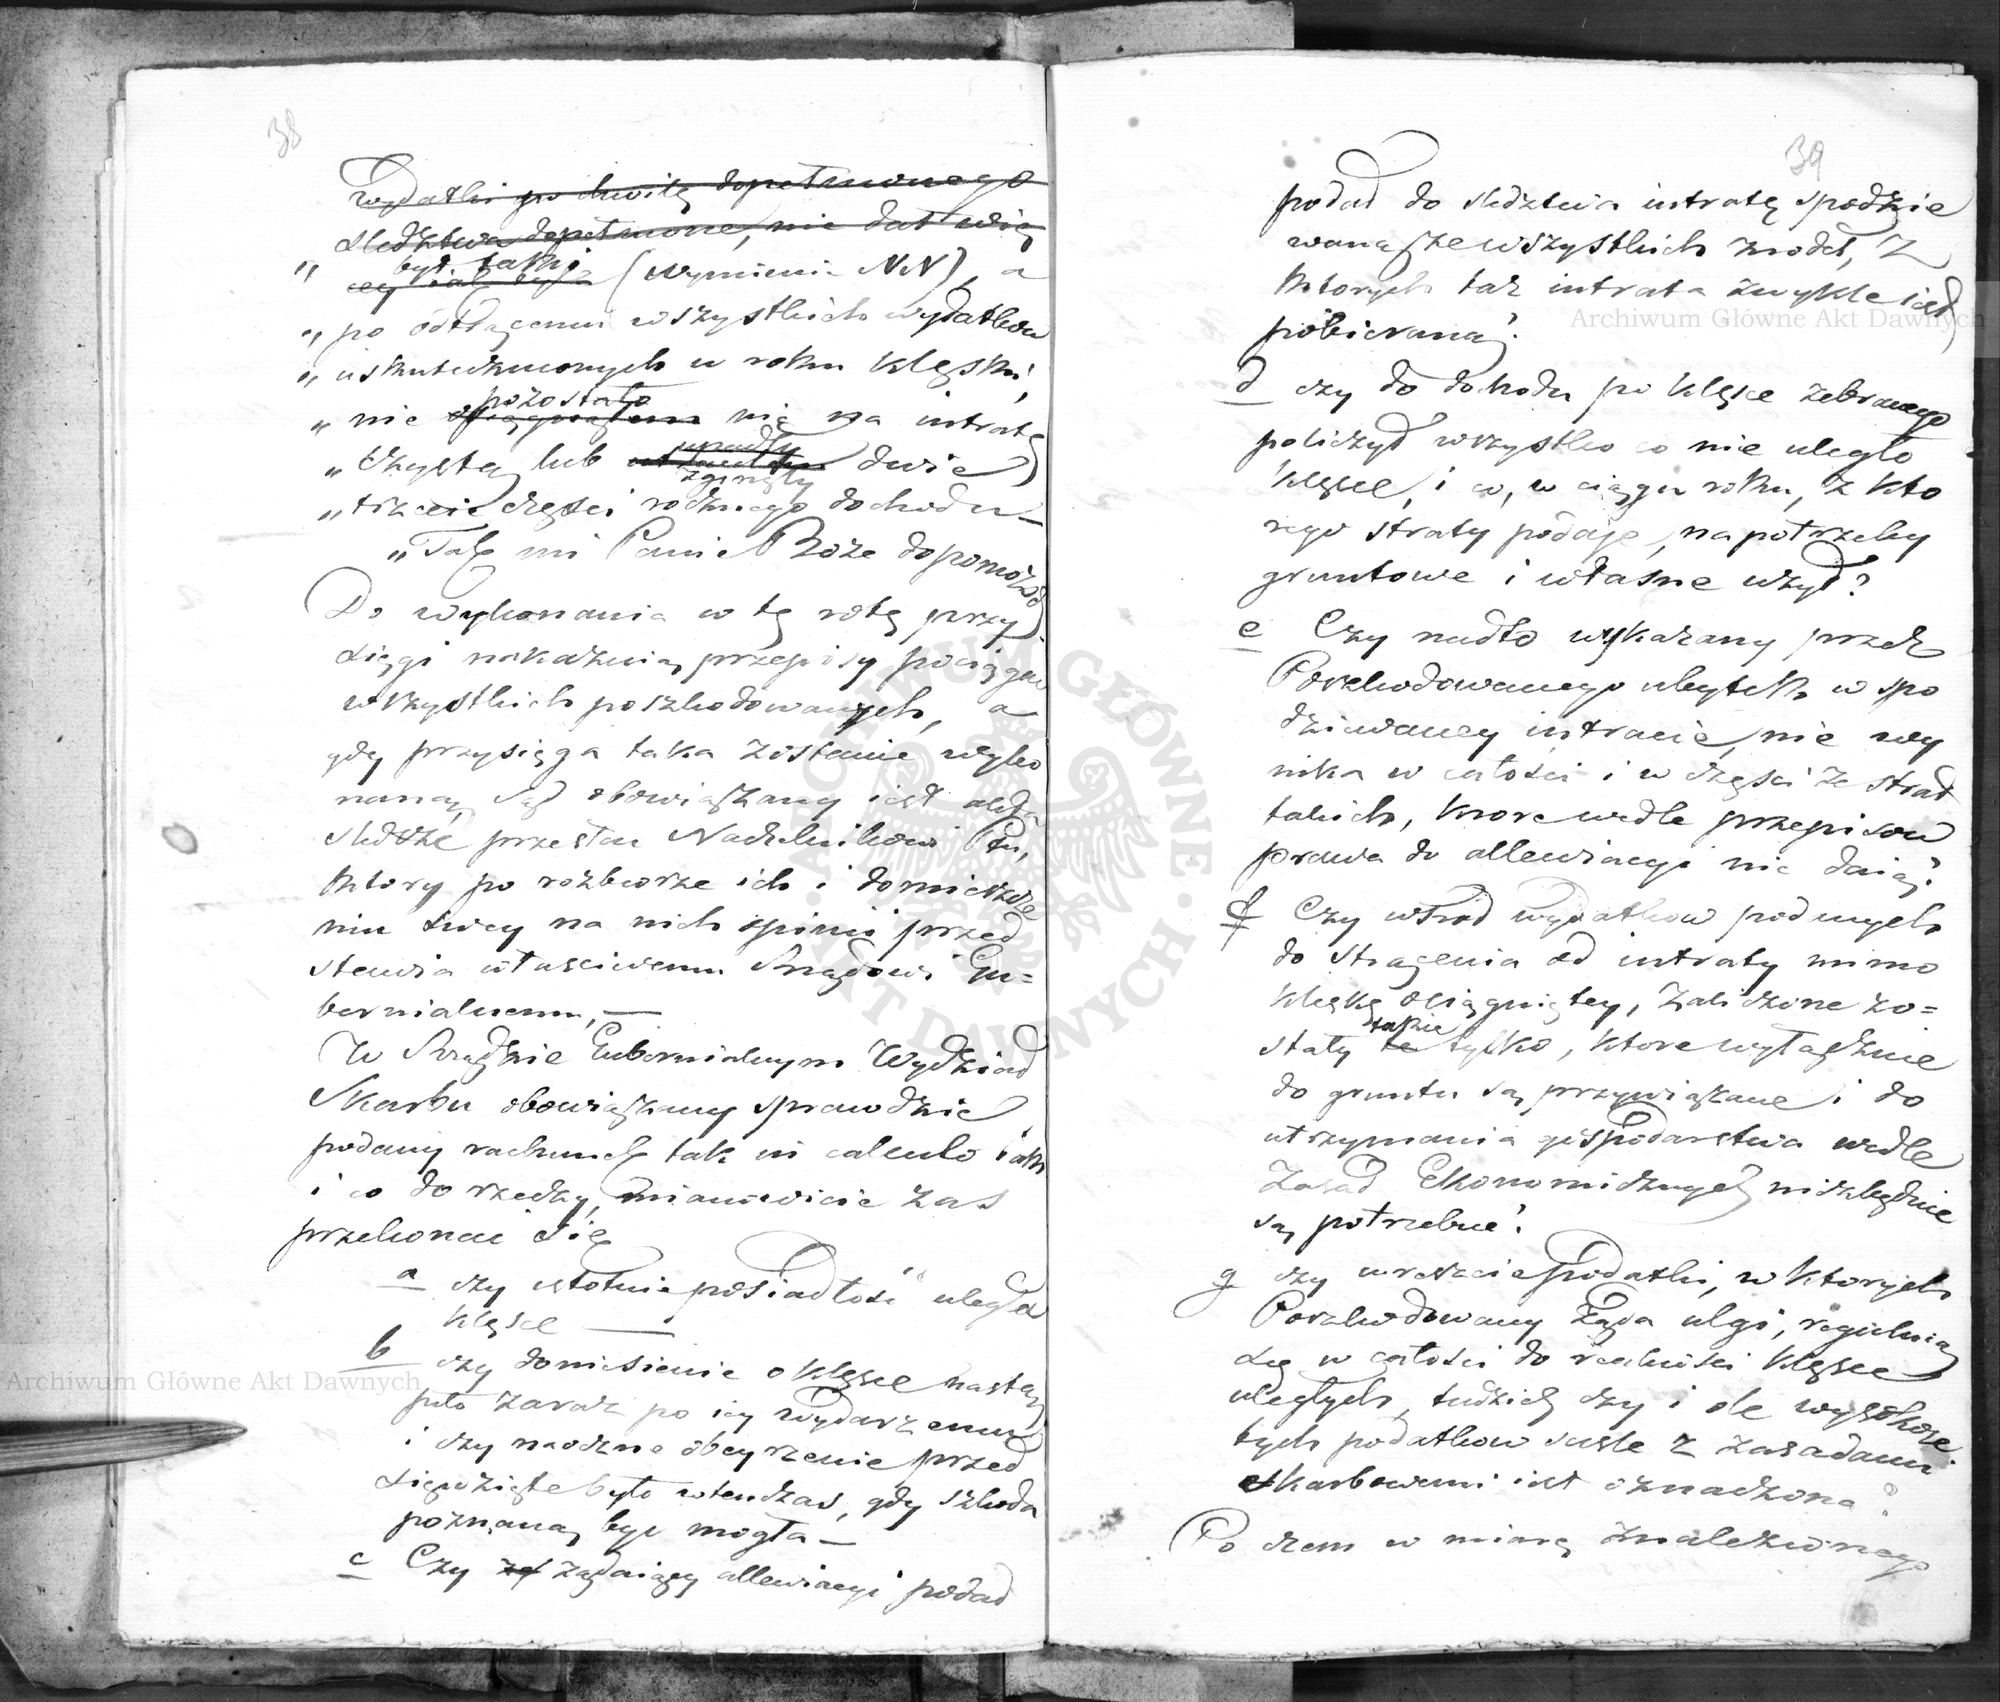 38
wydatki po chwilę dopełnionego
śledztwa dopełnione, nie dał więcej
był taki
„ (wymienia NN), a
„ po odtrąceniu wszystkich wydatków
„ uskutecznionych w roku klęski,
pozostało
„ nie nic na intratę
upadły
„ czystą lub dwie
zginęły
„ trzecie części rocznego dochodu —
„ Tak mi Panie Boże dopomóż
Do wykonania w tę rotę przy
sięgi nakaznią przepisy pociągać
wszystkich poszkodowanych, a
gdy przysięga taka zostanie wyko
naną, Sąd obowiązany jest akta
śledcze przesłać Naczelnikowi Ptu,
który po rozbiorze ich i domieszcze
niu swey na nich opinii przed
stawia właściwemu Rządowi Gu=
bernialnemu, —
W Rządzie Gubernialnym Wydział
Skarbu obowiązany sprawdzić
podany rachunek tak in calculo iako
i co do rzeczy, mianowicie zas
przekonać się
a czy istotnie posiadłość uległa
klęsce —
b czy doniesienie o klęsce nastą
piło zaraz po iey wydarzeniu
i czy naoczne obeyrzenie przed
sięwzięte było wtenczas, gdy szkoda
poznaną być mogła —
c Czy żądaiący allewiacyi podał
39
podał do śledztwa intratę spodzie
waną ze wszystkich źrodeł, z
ktorych taż intrata zwykle iest
pobieraną?
d czy do dochodu po klęsce zebranego
policzył wszystko co nie uległo
klęsce, i co, w ciągu roku, z kto
rego straty podaje, na potrzeby
gruntowe i własne użył?
e Czy nadto wykazany przez
Poszkodowanego ubytek w spo
dziewaney intracie, nie wy
nika w całości i w części ze strat
takich, ktore wedle przepisow
prawa do allewiacyi nie daią?
f Czy wśrod wydatkow podanych
do strącenia od intraty mimo
klęskę osiągniętey, zaliczone zo=
takie
stały te tylko, ktore wyłącznie
do gruntu są przywiązane i do
utrzymania gospodarstwa wedle
Zasad Ekonomicznych niezbędnie
są potrzebne?
g czy wreszcie podatki, w ktorych
Poszkodowany żąda ulgi, regulują
się w całości do realności klęsce
uległych, tudzież czy i ile wysokość
tych podatkow ściśle z zasadami
skarbowemi iest oznaczona?
Po czem w miarę znalezionego
Archiwum Główne Akt Dawnych
Archiwum Główne Akt Dawnych
ARCHIWUM GŁÓWNE AKT DAWNYCH